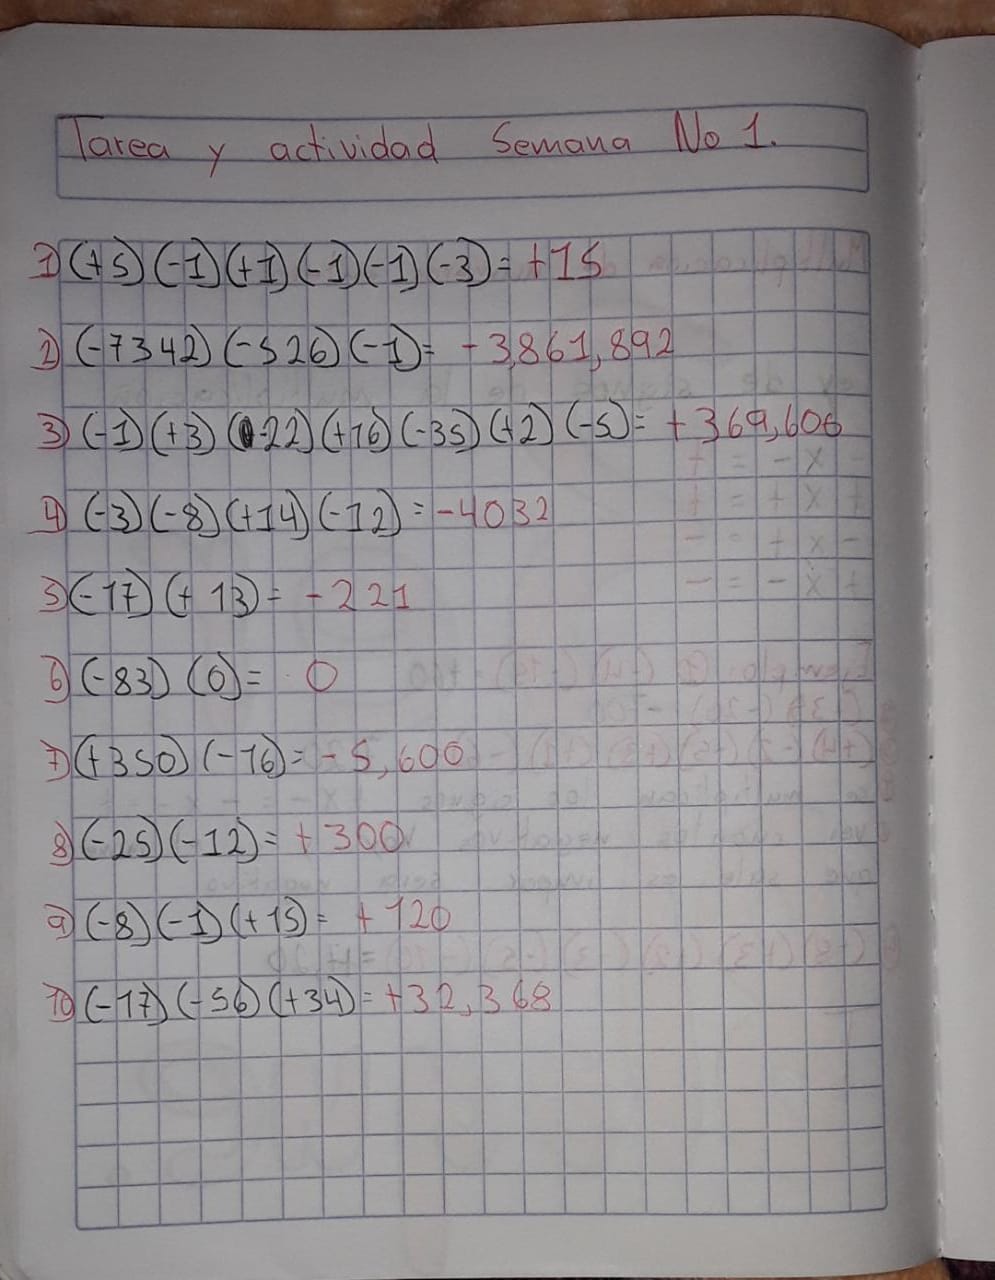 Tarea y actividad Semana No 1.
1) (+5) (-1) (+1) (-1) (-1) (-3) = +15
2) (-7342) (-526) (-1) = -3,861,892
3) (-1) (+3) (-22) (+16) (-35) (+2) (-5) = +369,606
4) (-3) (-8) (+14) (-12) = -4032
5) (-17) (+13) = -221
6) (-83) (0) = 0
7) (+350) (-16) = -5,600
8) (-25) (-12) = +300
9) (-8) (-1) (+15) = +120
10) (-17) (-56) (+34) = +32,368